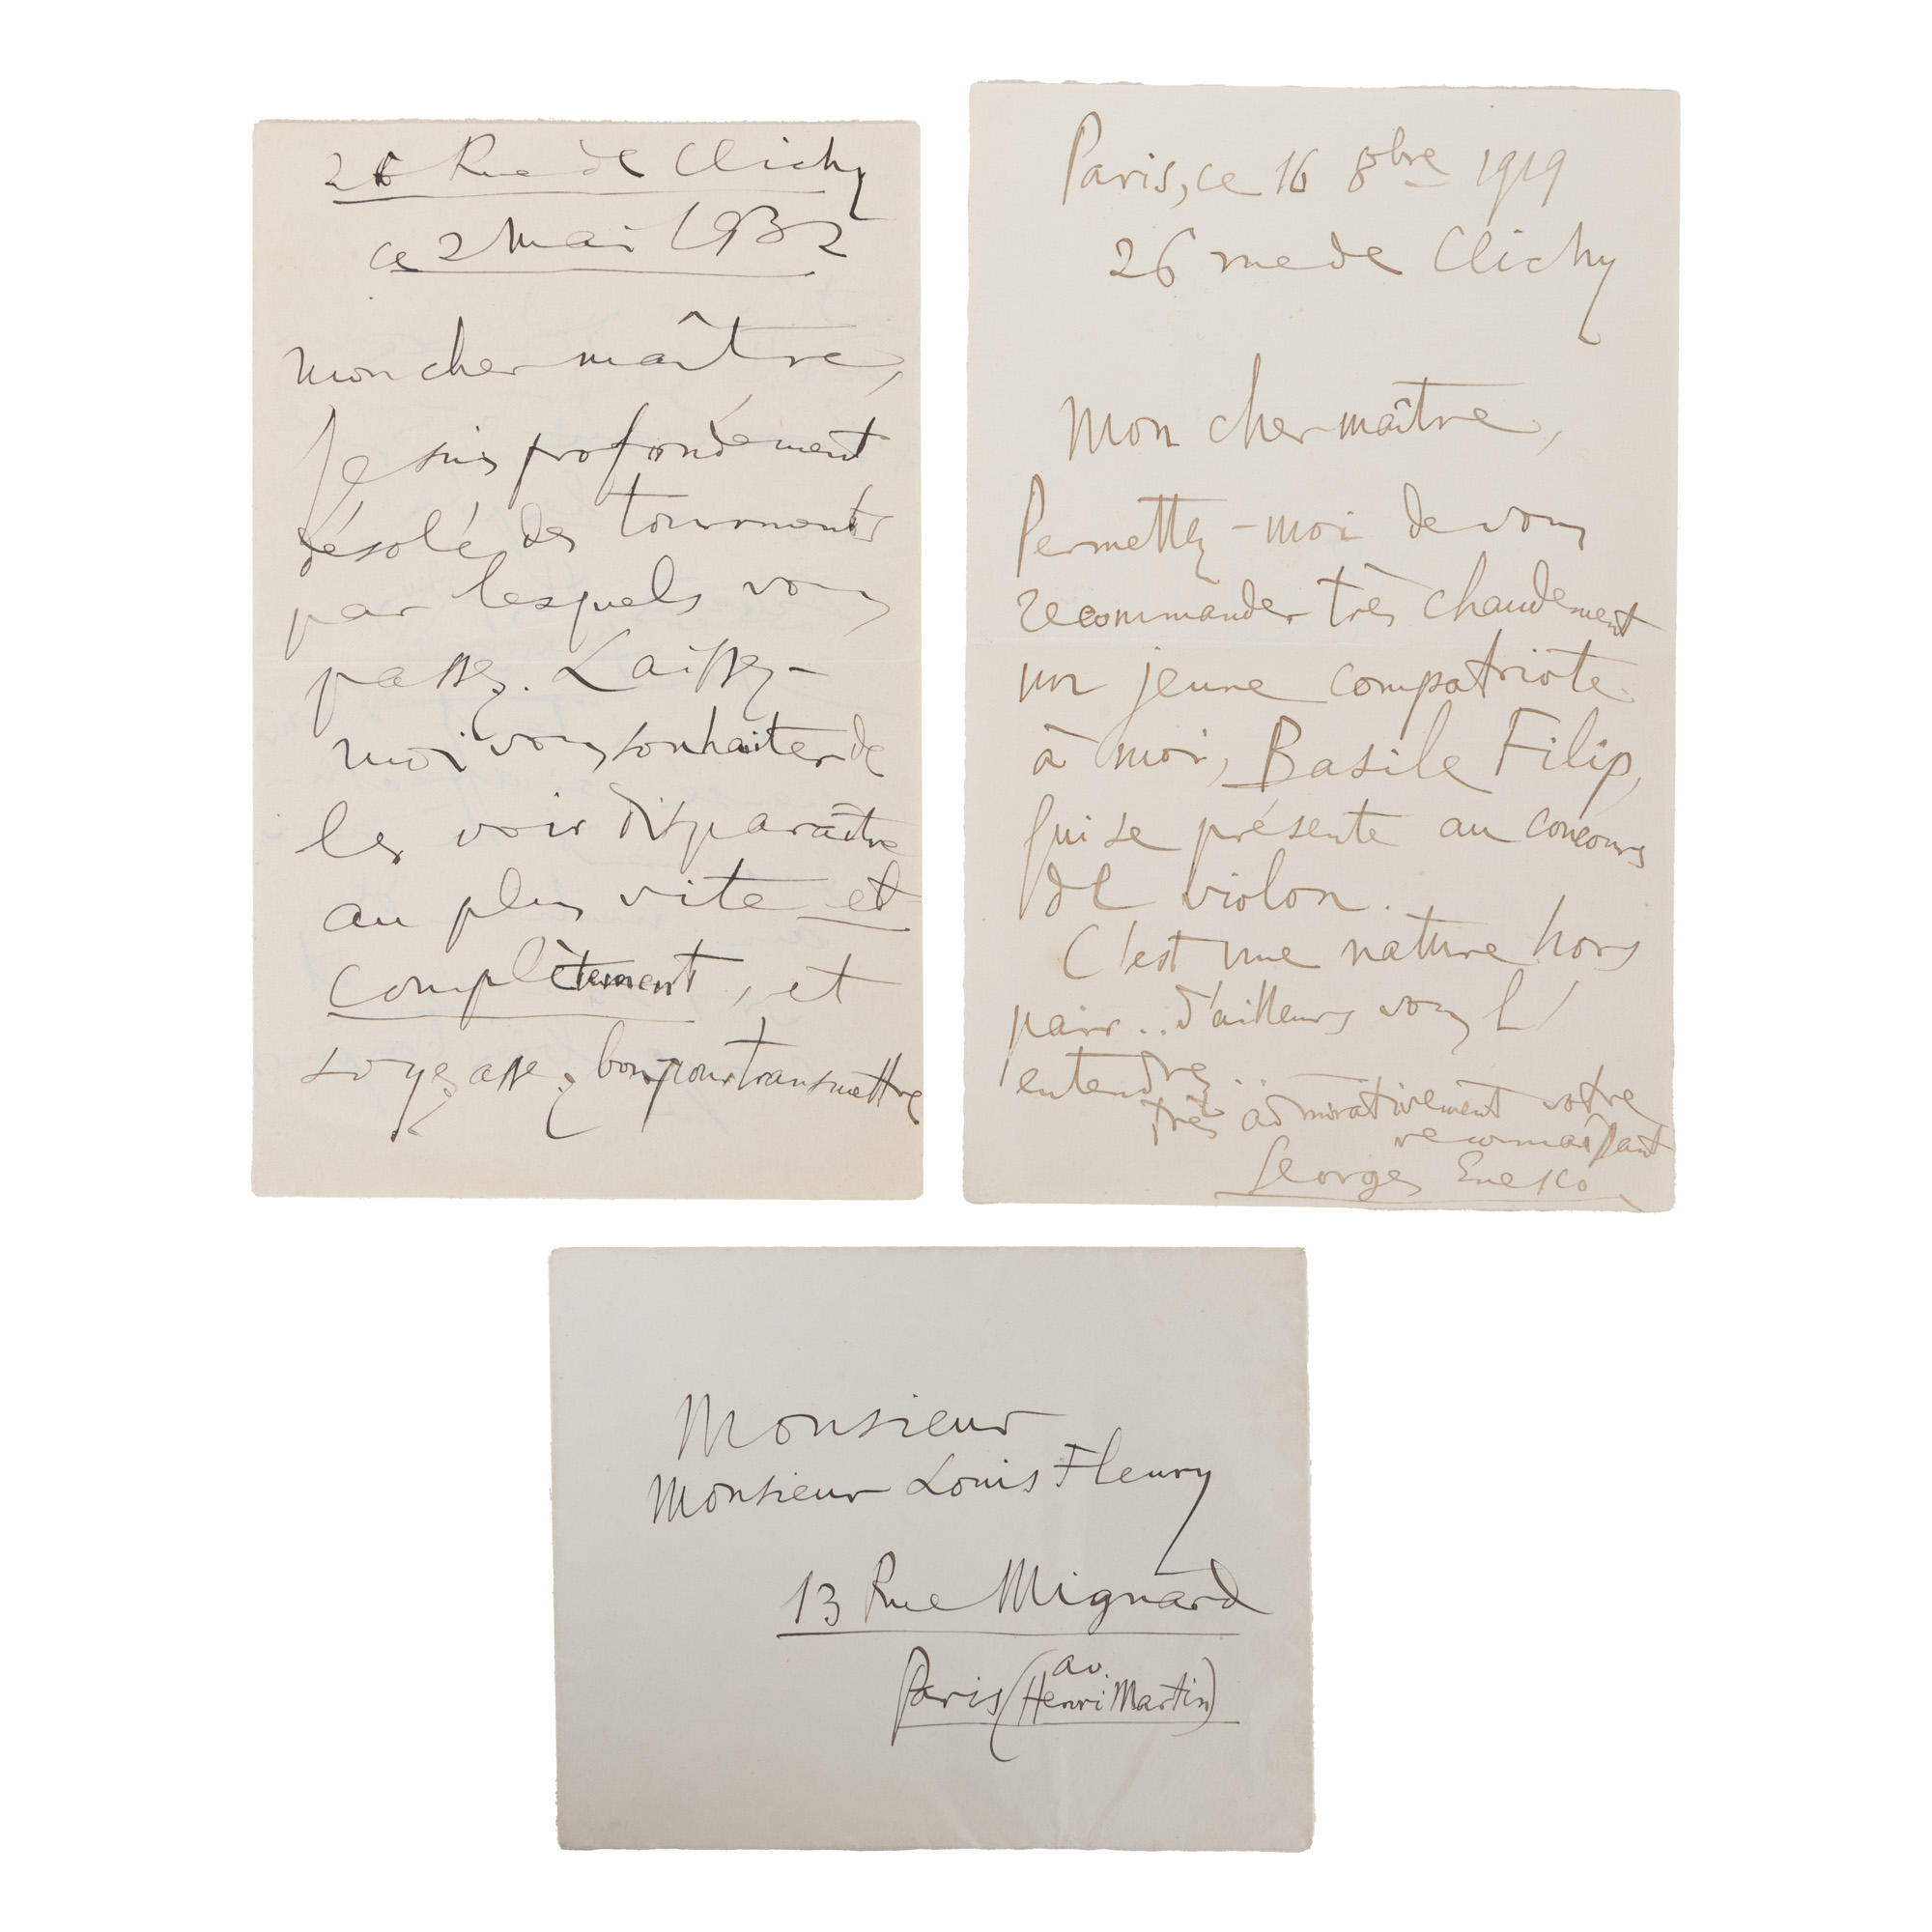 26 Rue de Clichy
ce 2 mai 1932
Mon cher maître,
Je suis profondément
désolé des tourments
par lesquels vous
passez. Laissez-
moi vous souhaiter de
les voir disparaître
au plus vite et
complètement, et
soyez assez bon pour transmettre
Paris, ce 16 8bre 1919
26 rue de Clichy
Mon cher maître,
Permettez-moi de vous
recommander très chaudement
un jeune compatriote
à moi, Basile Filip,
qui se présente au concours
de violon.
C'est une nature hors
pair.. d'ailleurs vous l'
entendrez..
très admirativement votre
reconnaissant
Georges Enesco
Monsieur
Monsieur Louis Fleury
13 Rue Mignard
Paris (av. Henri Martin)